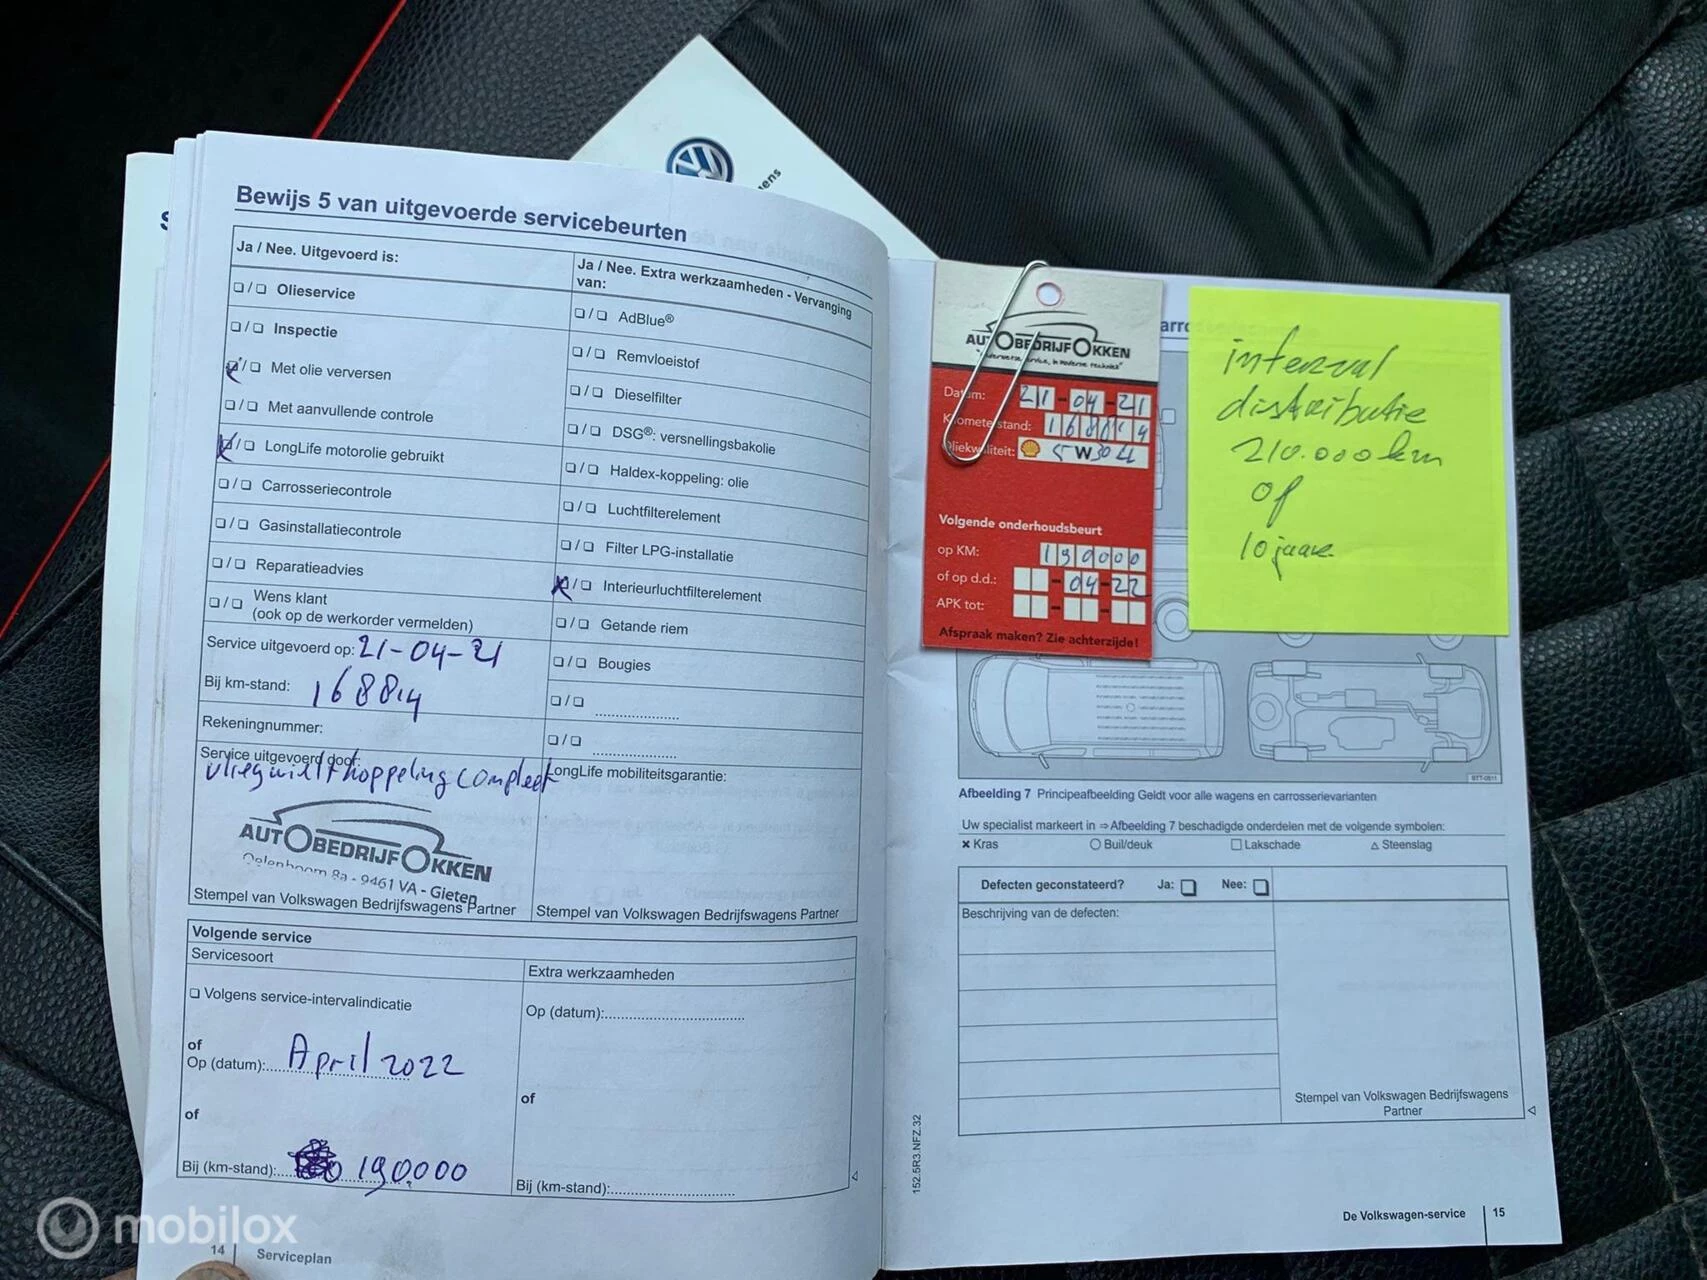 Bewijs 5 van uitgevoerde servicebeurten
Ja / Nee. Uitgevoerd is:
❏ / ❏ Olieservice
❏ / ❏ Inspectie
❏ / ❏ Met olie verversen
❏ / ❏ Met aanvullende controle
❏ / ❏ LongLife motorolie gebruikt
❏ / ❏ Carrosseriecontrole
❏ / ❏ Gasinstallatiecontrole
❏ / ❏ Reparatieadvies
❏ / ❏ Wens klant
(ook op de werkorder vermelden)
Service uitgevoerd op: 21-04-21
Bij km-stand: 168814
Rekeningnummer:
Service uitgevoerd door:
vliegwiel + koppeling compleet
AUTOBEDRIJF OKKEN
8a - 9461 VA - Gieten
Stempel van Volkswagen Bedrijfswagens Partner
Ja / Nee. Extra werkzaamheden - Vervanging
van:
❏ / ❏ AdBlue®
❏ / ❏ Remvloeistof
❏ / ❏ Dieselfilter
❏ / ❏ DSG®: versnellingsbakolie
❏ / ❏ Haldex-koppeling: olie
❏ / ❏ Luchtfilterelement
❏ / ❏ Filter LPG-installatie
❏ / ❏ Interieurluchtfilterelement
❏ / ❏ Getande riem
❏ / ❏ Bougies
❏ / ❏ ....................
❏ / ❏ ....................
LongLife mobiliteitsgarantie:
Stempel van Volkswagen Bedrijfswagens Partner
Volgende service
Servicesoort
❏ Volgens service-intervalindicatie
of
Op (datum): April 2022
of
Bij (km-stand): 190.000
Extra werkzaamheden
Op (datum):
of
Bij (km-stand):
14 Serviceplan
ens
AUTOBEDRIJF OKKEN
Datum: 21-04-21
Kilometerstand: 168814
Oliekwaliteit: 5W30 LL
Volgende onderhoudsbeurt
op KM: 190000
of op d.d.: -04-22
APK tot:
Afspraak maken? Zie achterzijde!
interval
distributie
210.000 km
of
10 jaar
BTT-0511
Afbeelding 7 Principeafbeelding Geldt voor alle wagens en carrosserievarianten
Uw specialist markeert in ⇒ Afbeelding 7 beschadigde onderdelen met de volgende symbolen:
✖ Kras ○ Buil/deuk □ Lakschade △ Steenslag
Defecten geconstateerd? Ja: ❏ Nee: ❏
Beschrijving van de defecten:
Stempel van Volkswagen Bedrijfswagens
Partner
152.5R3.NFZ.32
De Volkswagen-service 15
mobilox